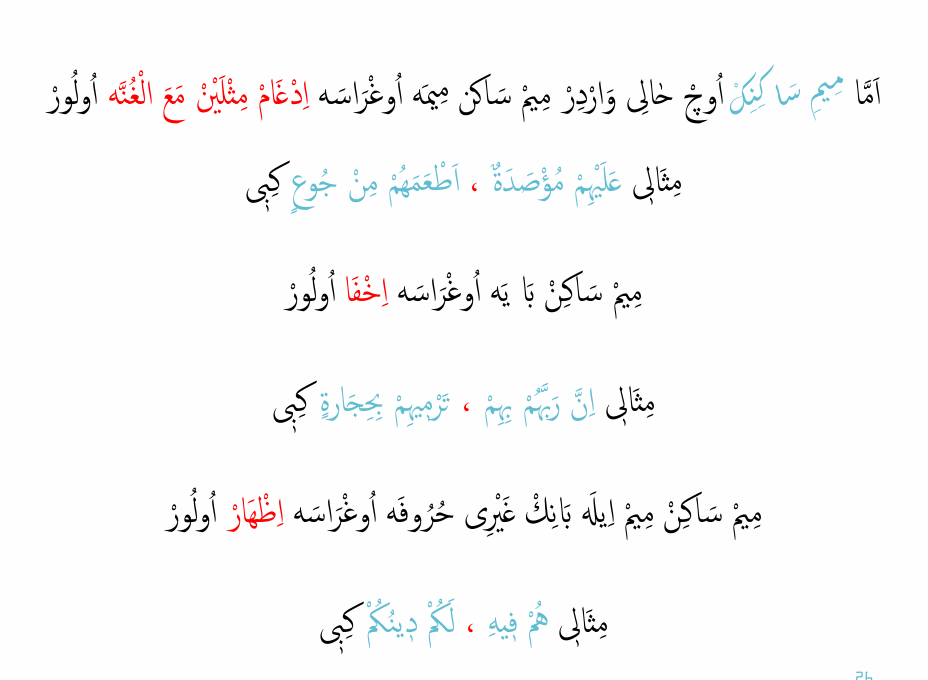 اَمَّا مِيمِ سَا كِنِكْ اُوچْ حَالِى وَارْدِرْ مِيمْ سَاكن مِيمَه اُوغْرَاسَه اِدْغَامْ مِثْلَيْنْ مَعَ الْغُنَّه اُولُورْ
مِثَالِى عَلَيْهِمْ مُؤْصَدَةٌ ، اَطْعَمَهُمْ مِنْ جُوعٍ كِبِى
مِيمْ سَاكِنْ بَا يَه اُوغْرَاسَه اِخْفَا اُولُورْ
مِثَالِى اِنَّ رَبَّهُمْ بِهِمْ ، تَرْمِيهِمْ بِحِجَارةٍ كِبِى
مِيمْ سَاكِنْ مِيمْ اِيلَه بَانِكْ غَيْرِى حُرُوفَه اُوغْرَاسَه اِظْهَارْ اُولُورْ
مِثَالِى هُمْ فِيهِ ، لَكُمْ دِينُكُمْ كِبِى